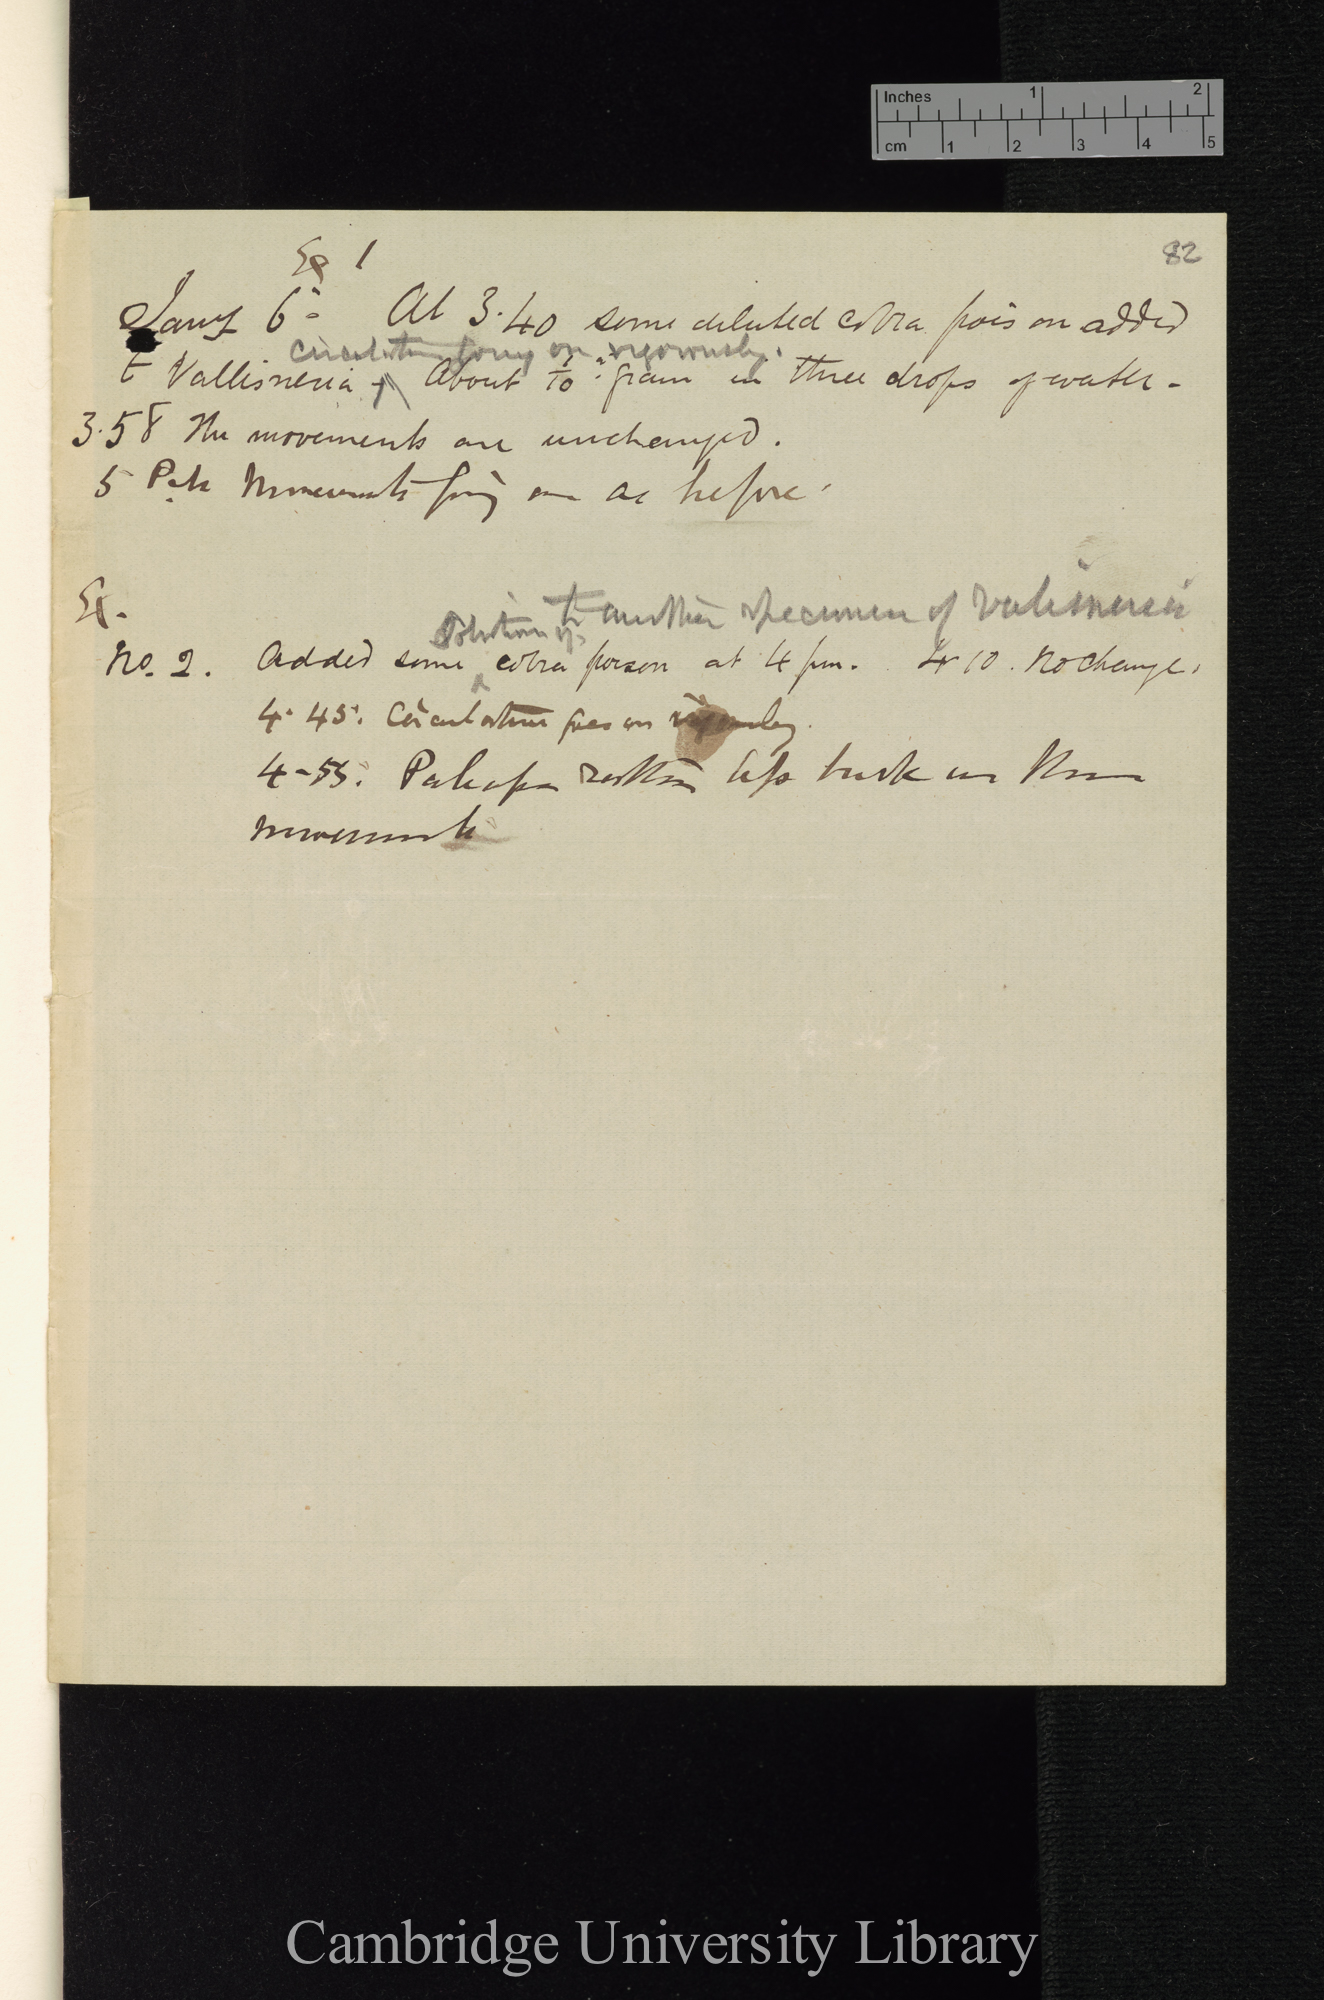 Inches 1 2
cm 1 2 3 4 5
82
Ex 1
Jany 6. At 3.40 some diluted cobra poison added
circulation going on vigorously.
to Vallisneria. About 1/10 grain in three drops of water -
3.58 The movements are unchanged.
5 Movements going on as before.
Ex.
solution of to another specimen of Valisneria
No. 2. Added some cobra poison at 4 pm. 4.10. No change.
4.45. Circulation goes on vigorously.
4-55. Perhaps rather less brisk in
movements
Cambridge University Library